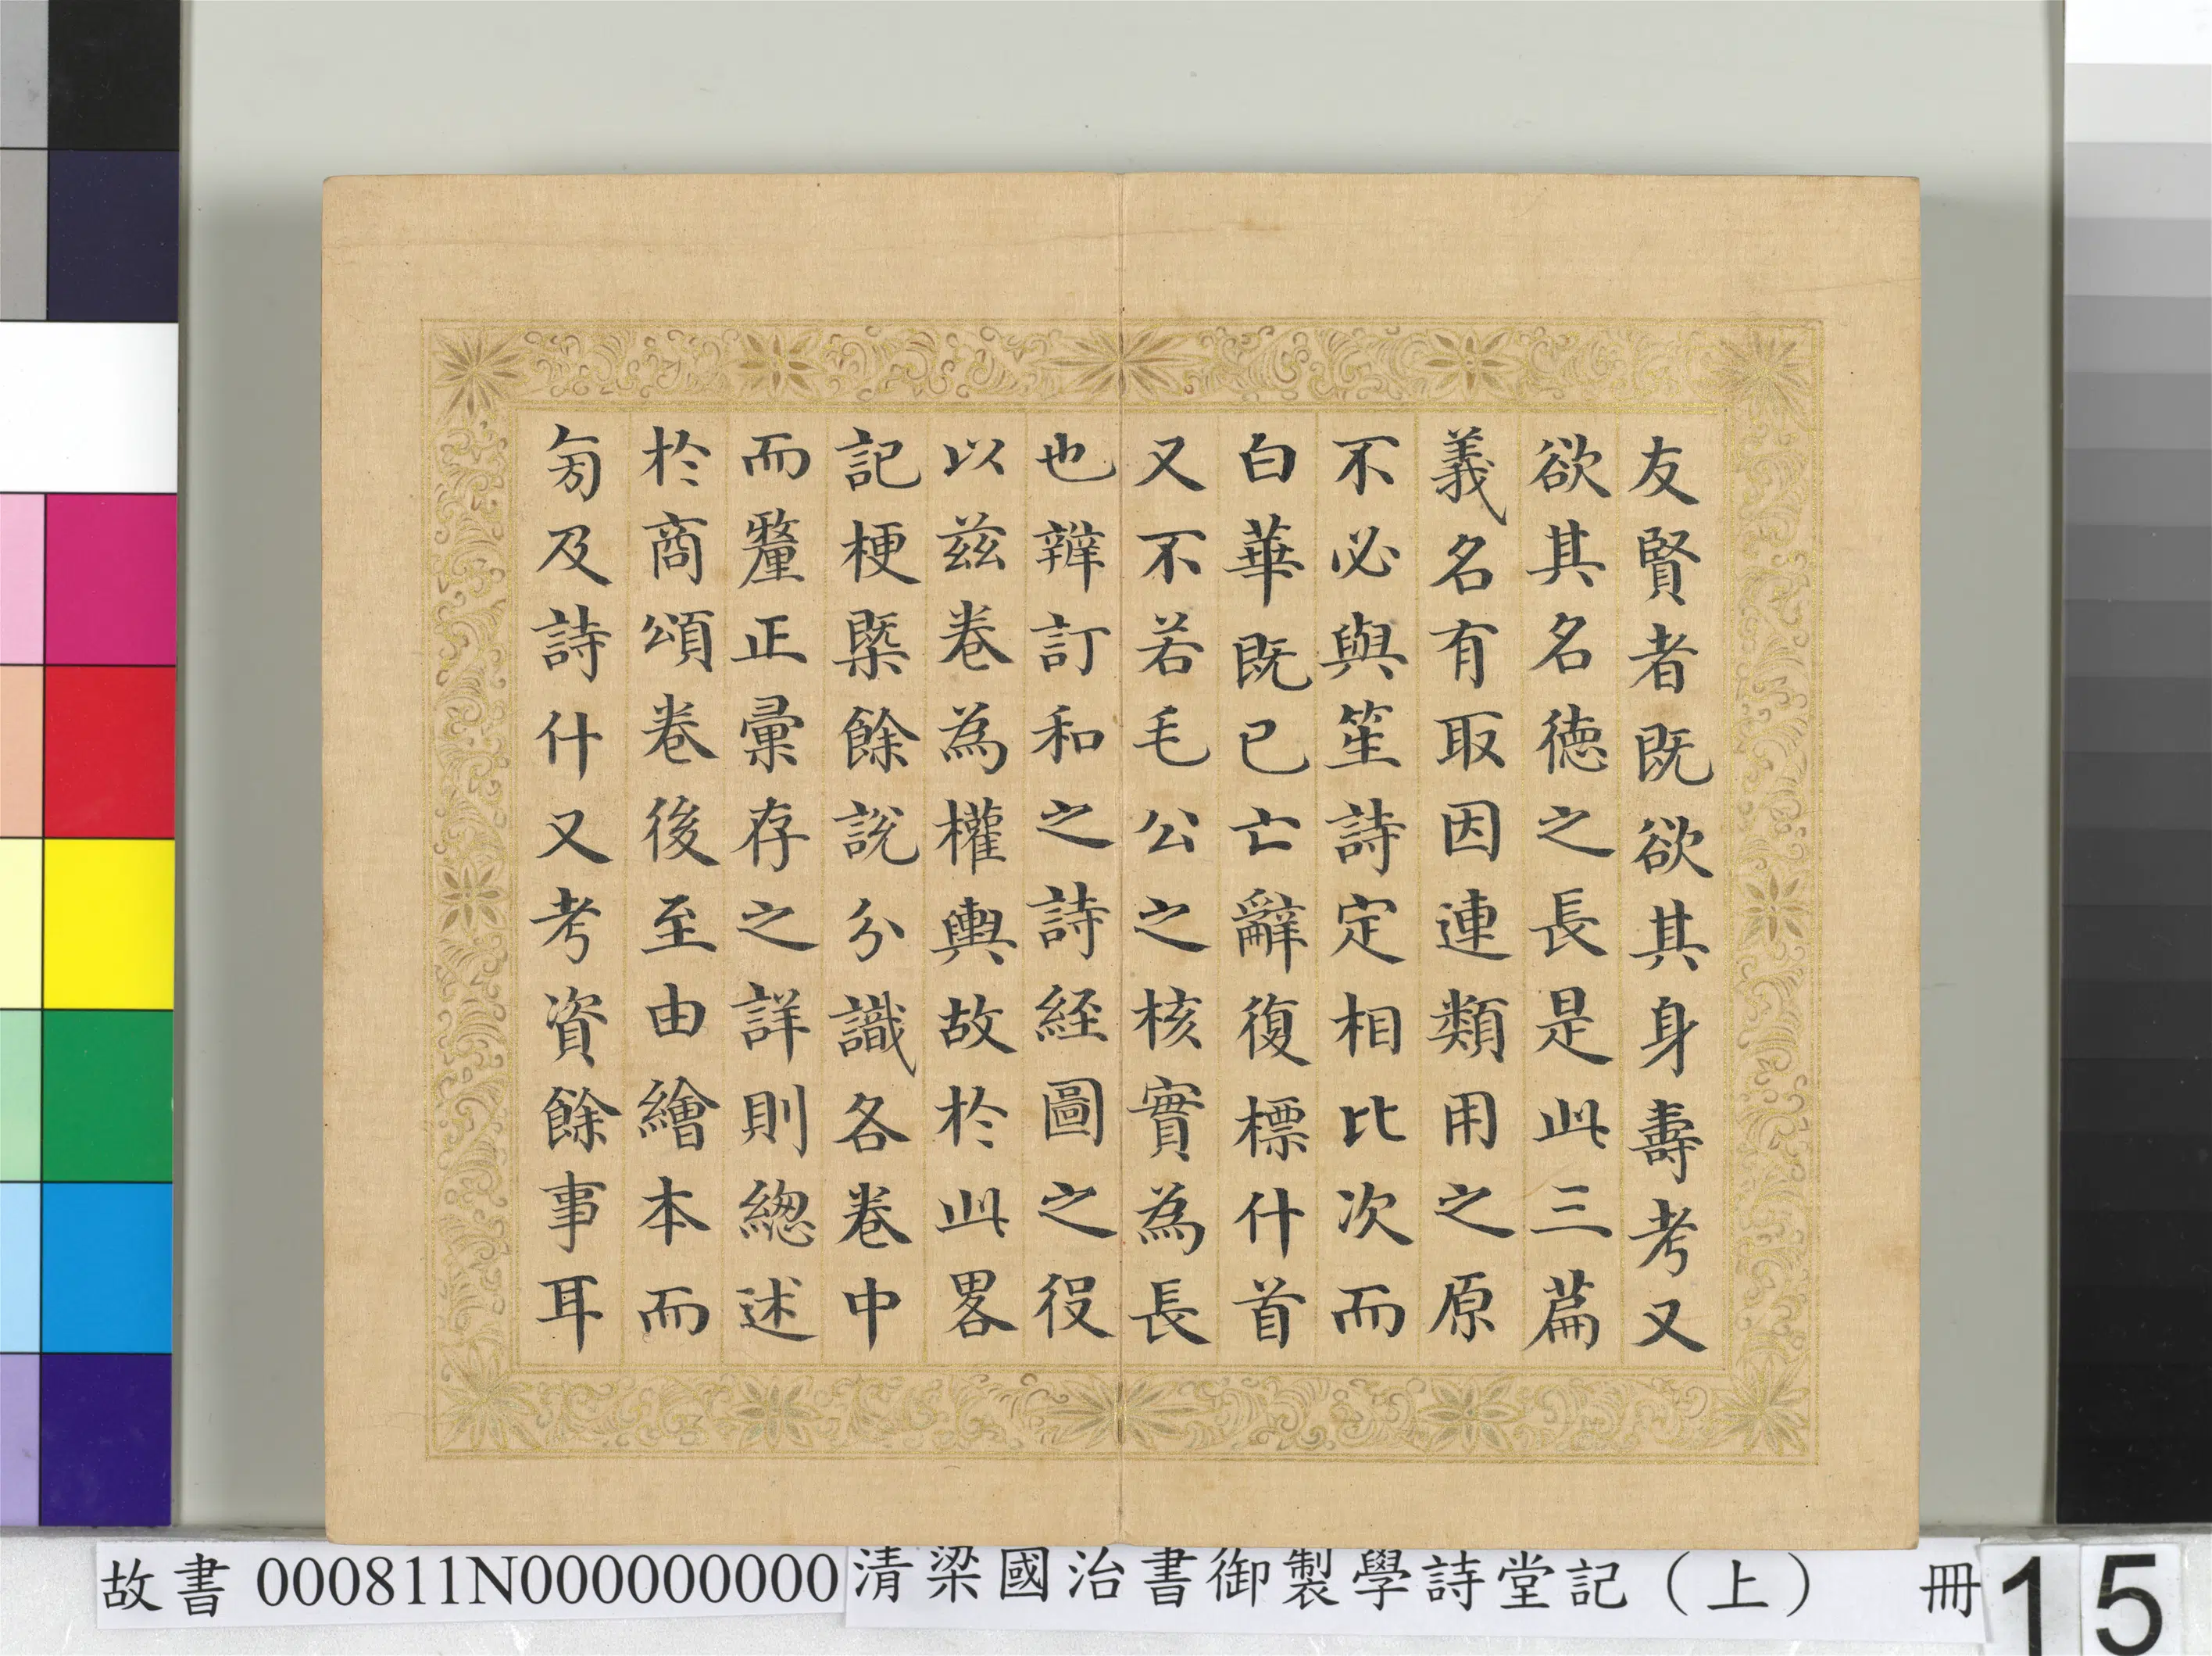 友賢者既欲其身壽考又
欲其名徳之長是此三篇
義名有取因連類用之原
不必與笙詩定相比次而
白華既已亡辭復標什首
又不若毛公之核實為長
也辨訂和之詩經圖之役
以兹卷為權輿故於此畧
記梗槩餘說分識各卷中
而釐正彙存之詳則總述
於商頌卷後至由繪本而
旁及詩什又考資餘事耳
故書 000811N000000000 清梁國治書御製學詩堂記（上） 冊 15